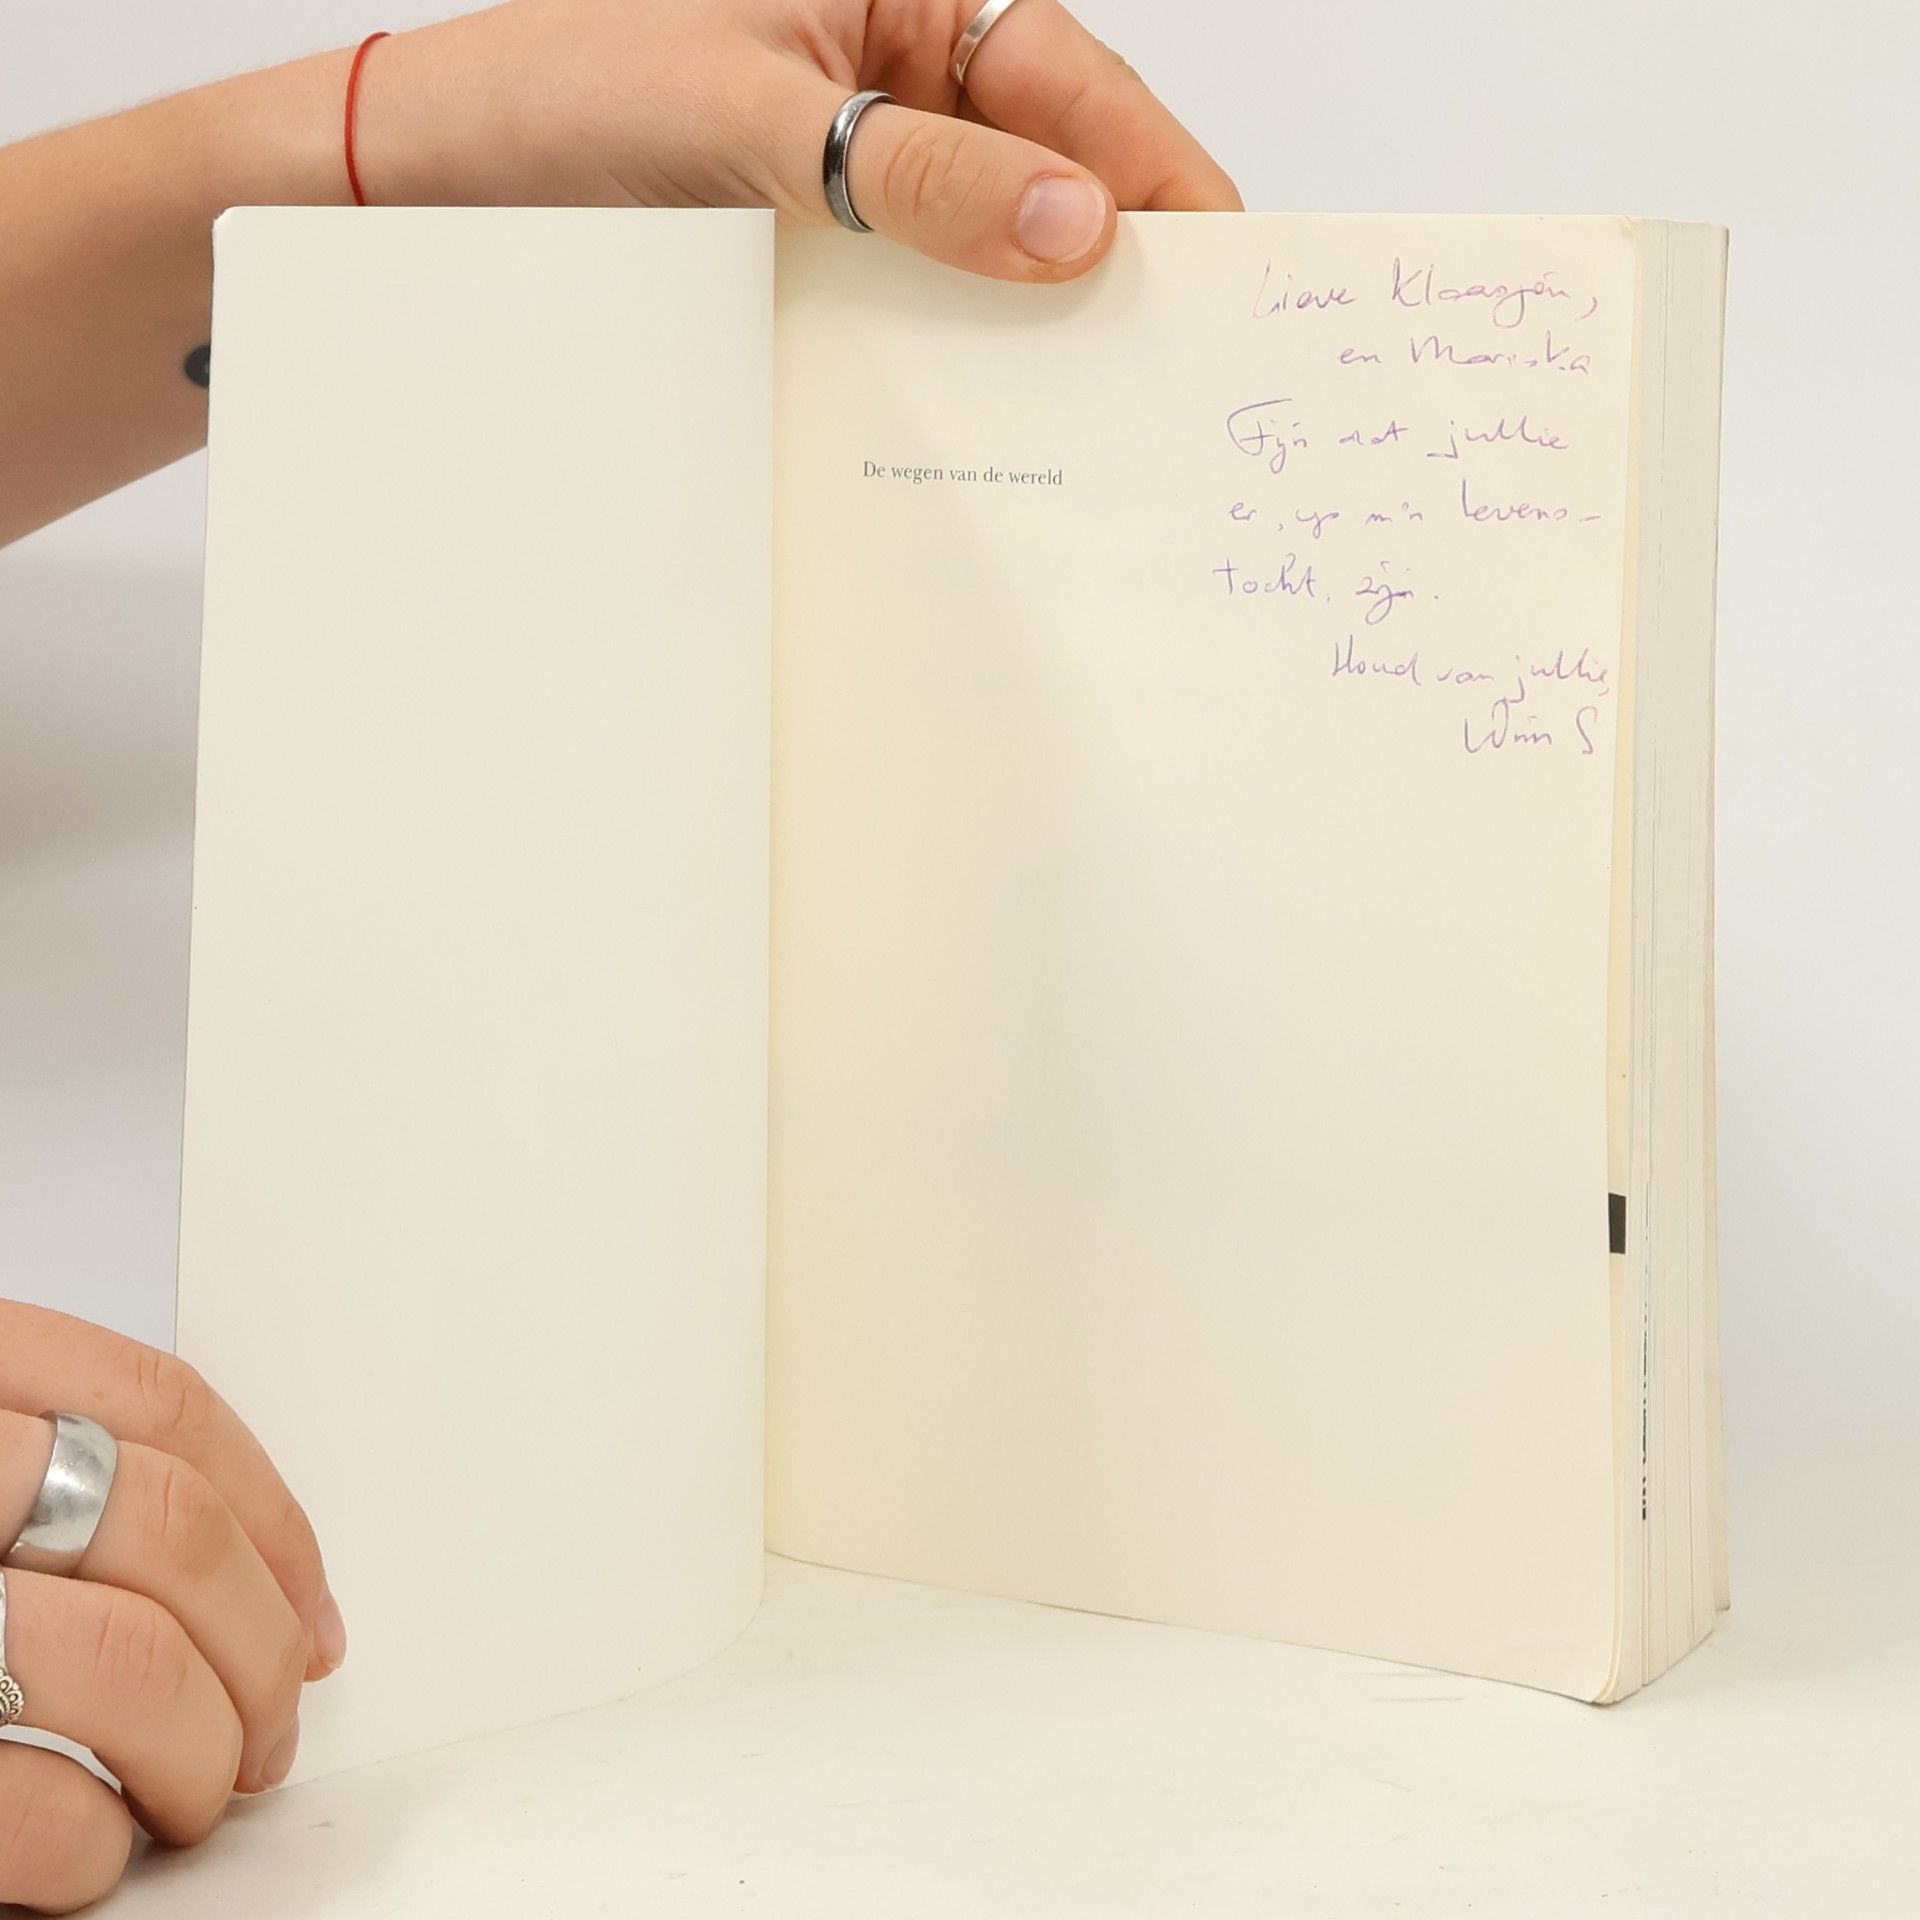 De wegen van de wereld
Lieve Klaasjan,
en Mariska
Fijn dat jullie
er, op m'n levens-
tocht, zijn.
Houd van jullie,
Wim S